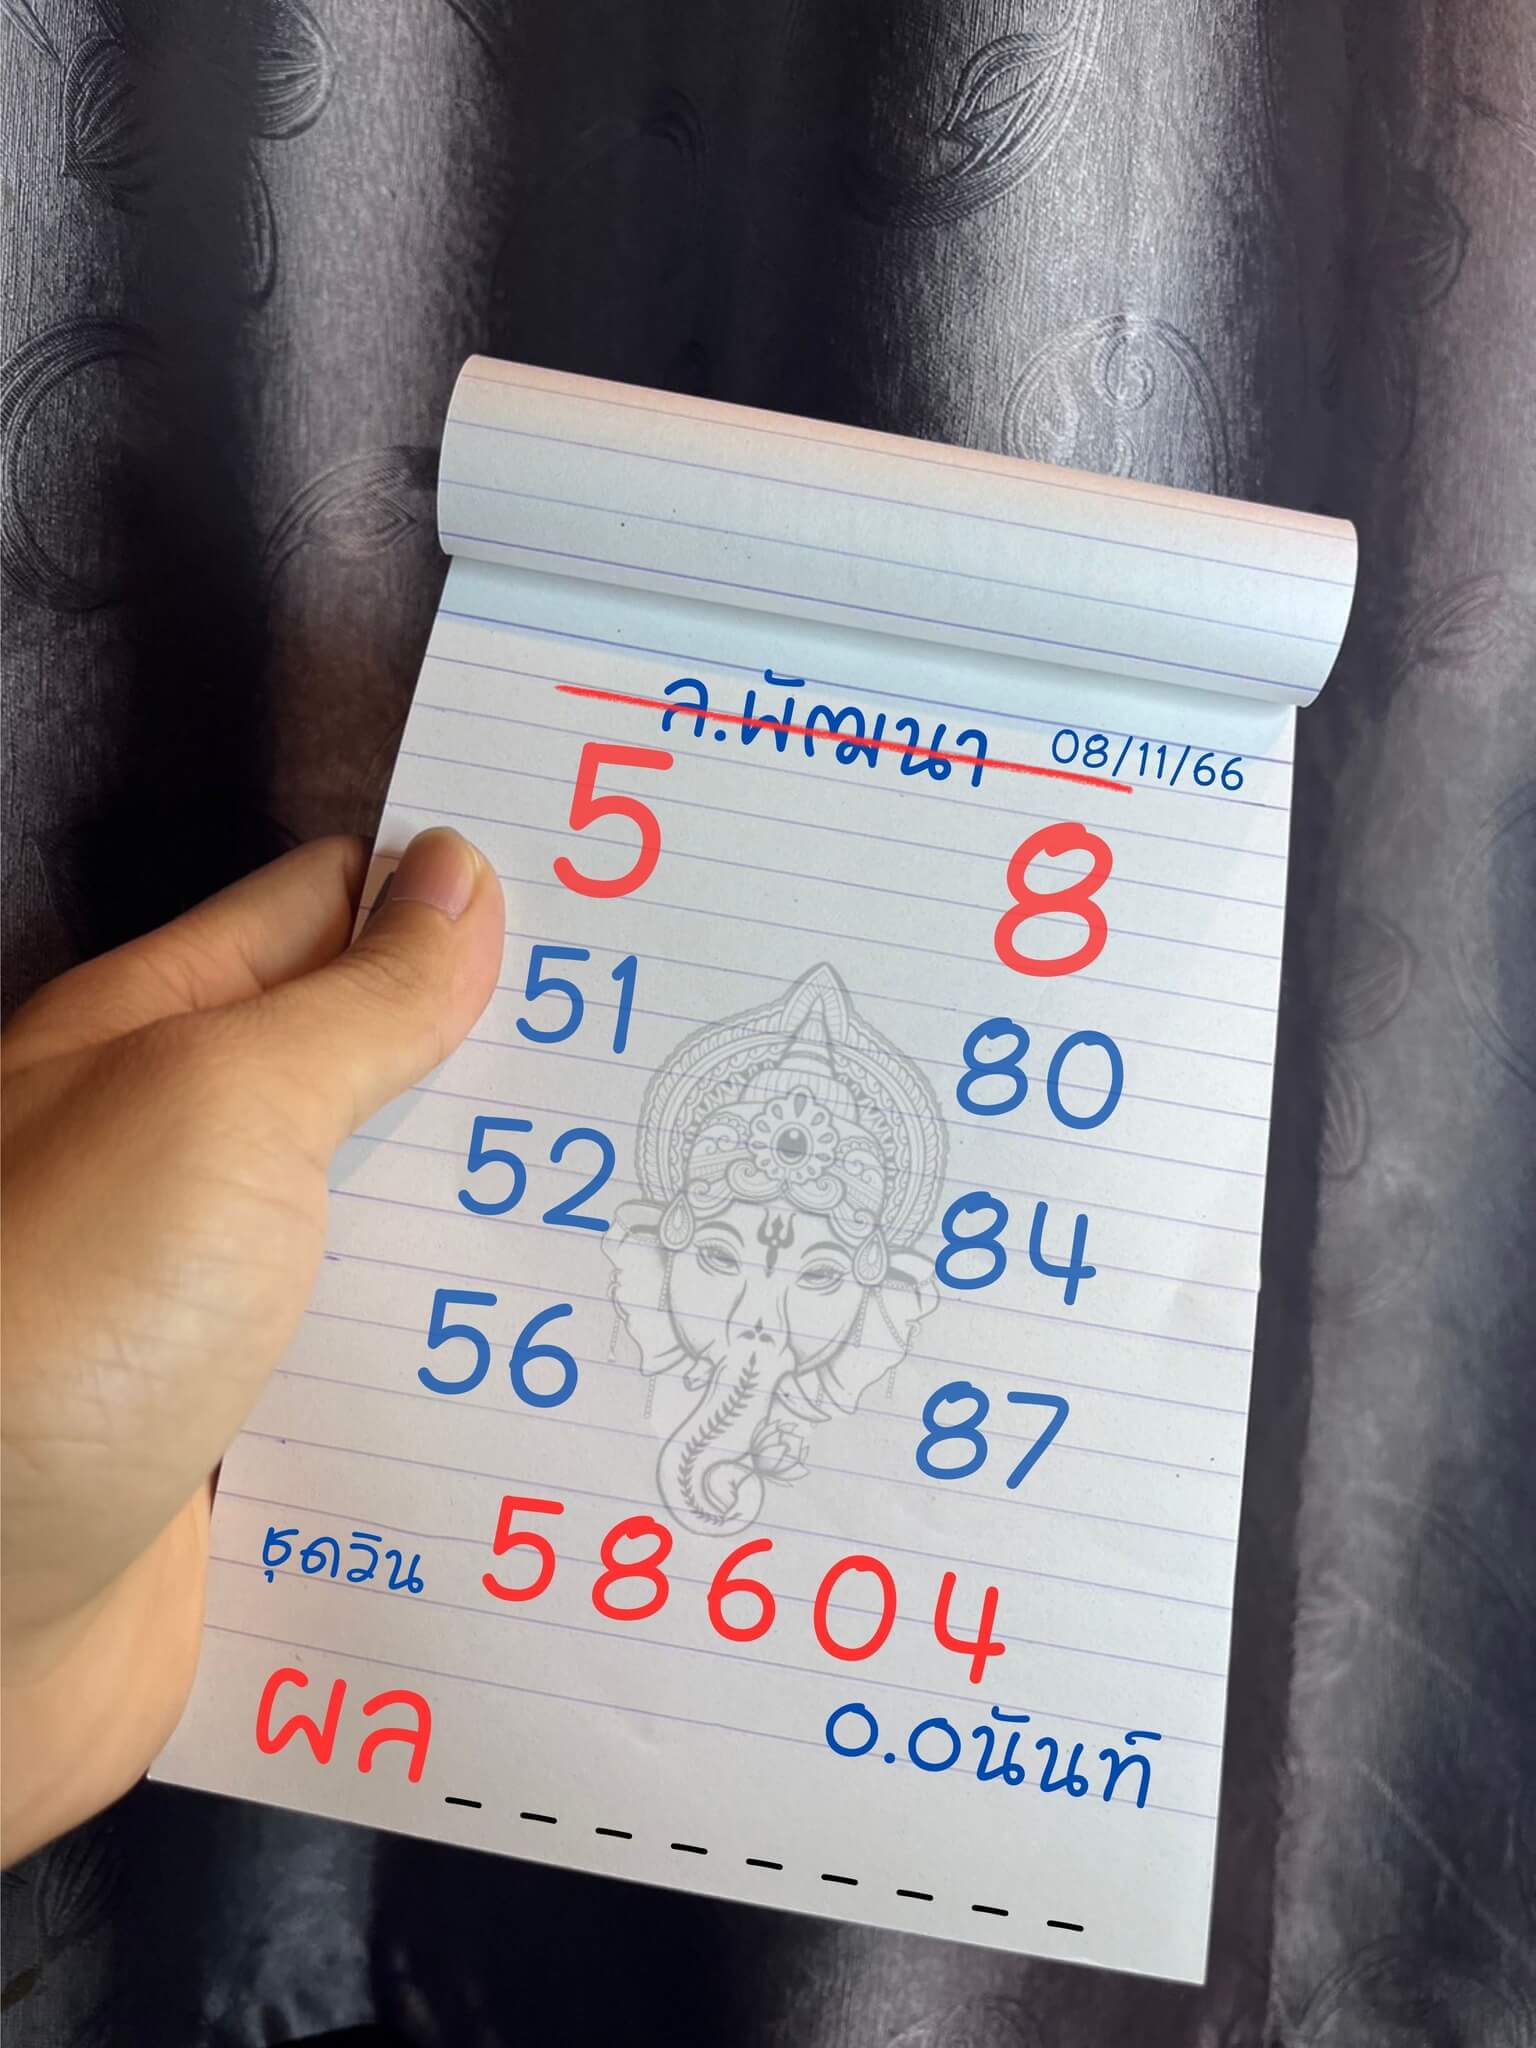 ล.พัฒนา 08/11/66
5 8
51 80
52 84
56 87
ชุดวิน 58604
ผล อ.อนันท์
_ _ _ _ _ _ _ _ _